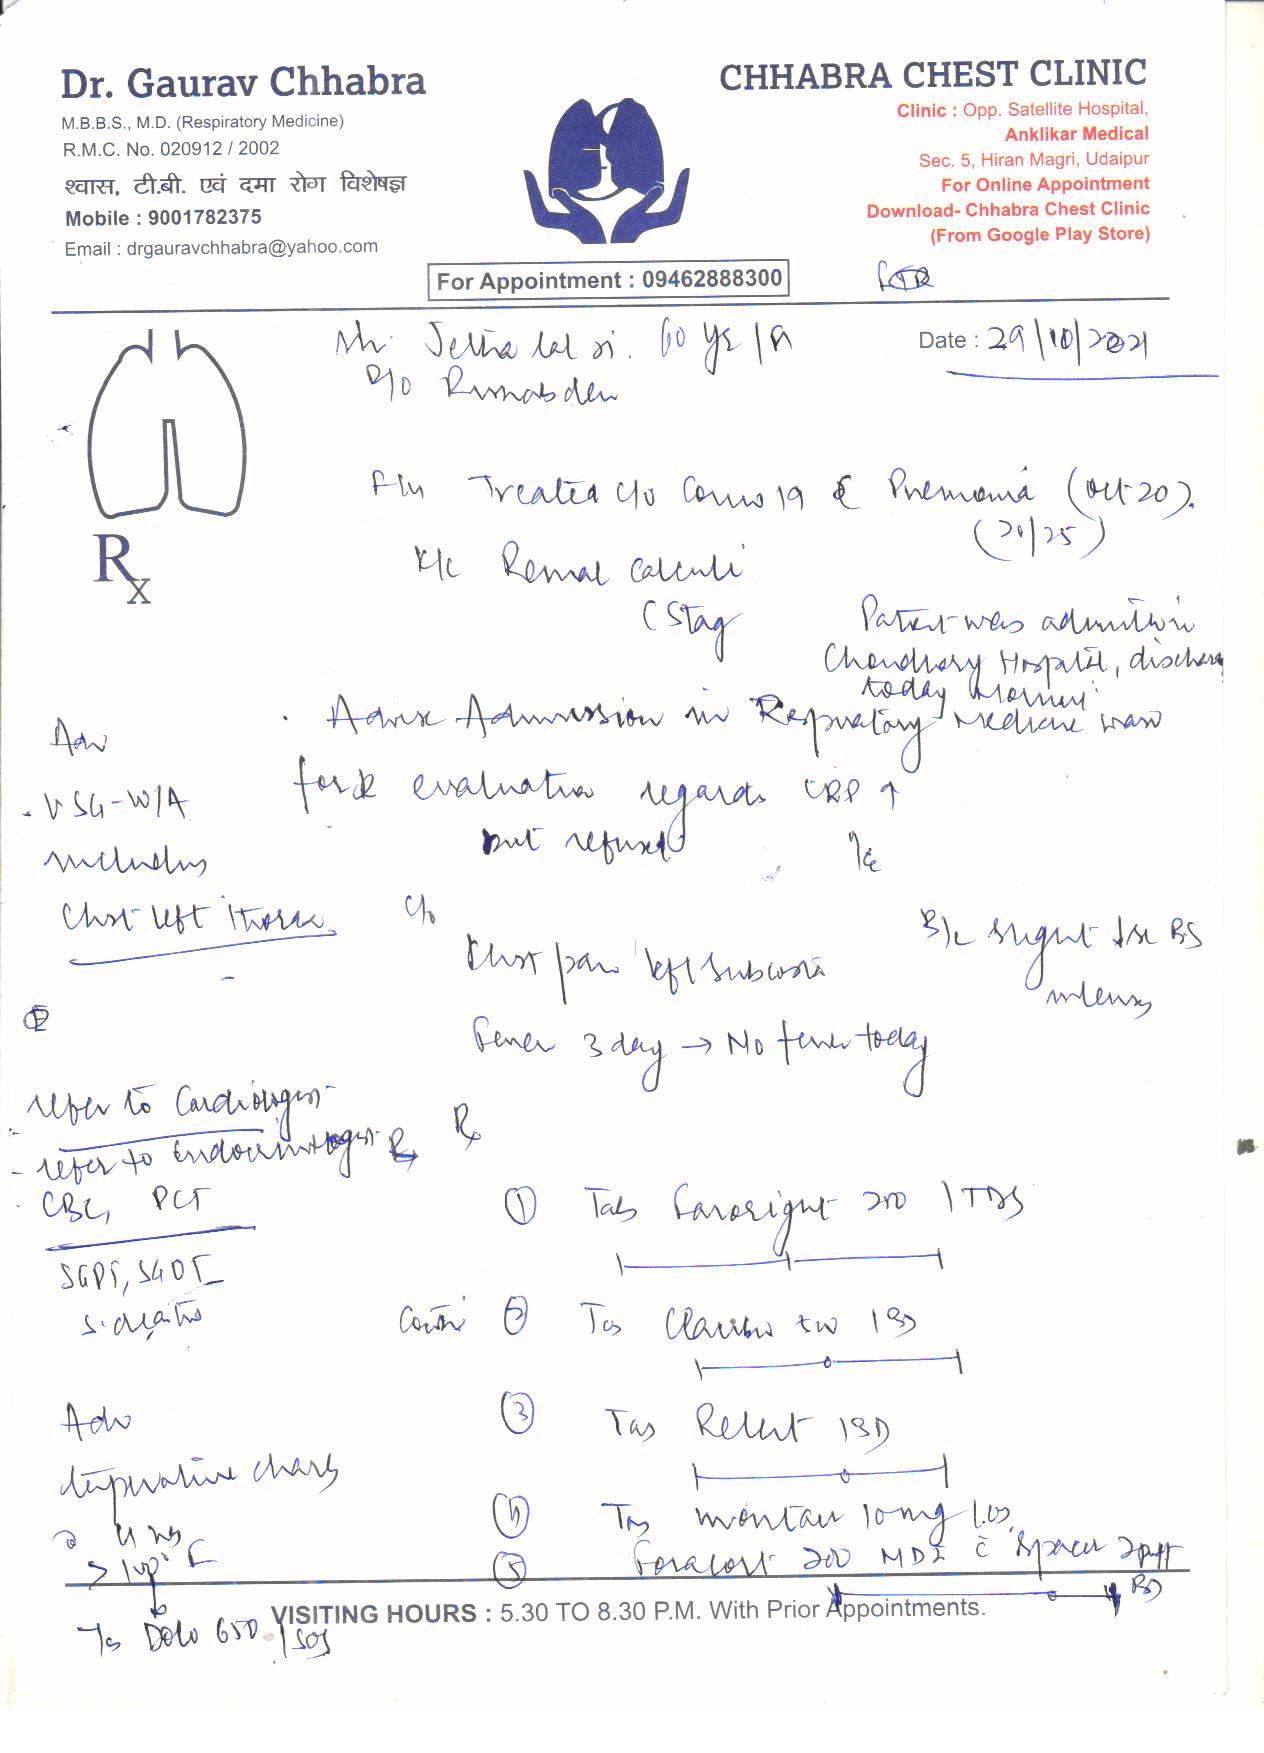 Dr. Gaurav Chhabra
M.B.B.S., M.D. (Respiratory Medicine)
R.M.C. No. 020912 / 2002
श्वास, टी.बी. एवं दमा रोग विशेषज्ञ
Mobile : 9001782375
Email : drgauravchhabra@yahoo.com
CHHABRA CHEST CLINIC
Clinic : Opp. Satellite Hospital,
Anklikar Medical
Sec. 5, Hiran Magri, Udaipur
For Online Appointment
Download- Chhabra Chest Clinic
(From Google Play Store)
For Appointment : 09462888300
Mr. Jetha lal 60 yr
Date : 29/10/2021
R/o
Treated c/o 19 c Pnemonia (Oct-20).
(20/25)
K/c Renal Calculi
(Stag
Patient was
Choudhary Hospital, discharg
today
Rx
Advise Admission in Respiratory Medicine
for evaluation regards CRP ↑
but refused
Adv
USG-W/A
including
Chest left thorax
C/o
Chest pain left subcostal
B/L slight BS
Fever 3 day → No fever today
refer to Cardiologist
- refer to endocrinologist
CBC, PCT
SGPT, SGOT
Rx
① Tab 200 1 TDS
② Tab 1 BD
③ Tab Relent 1 BD
④ Tab 10 mg
⑤ Foracort 200 MDI c spacer 2 puff
BD
Adv
temperature
> 100° F
Tab Dolo 650 1 SOS
VISITING HOURS : 5.30 TO 8.30 P.M. With Prior Appointments.